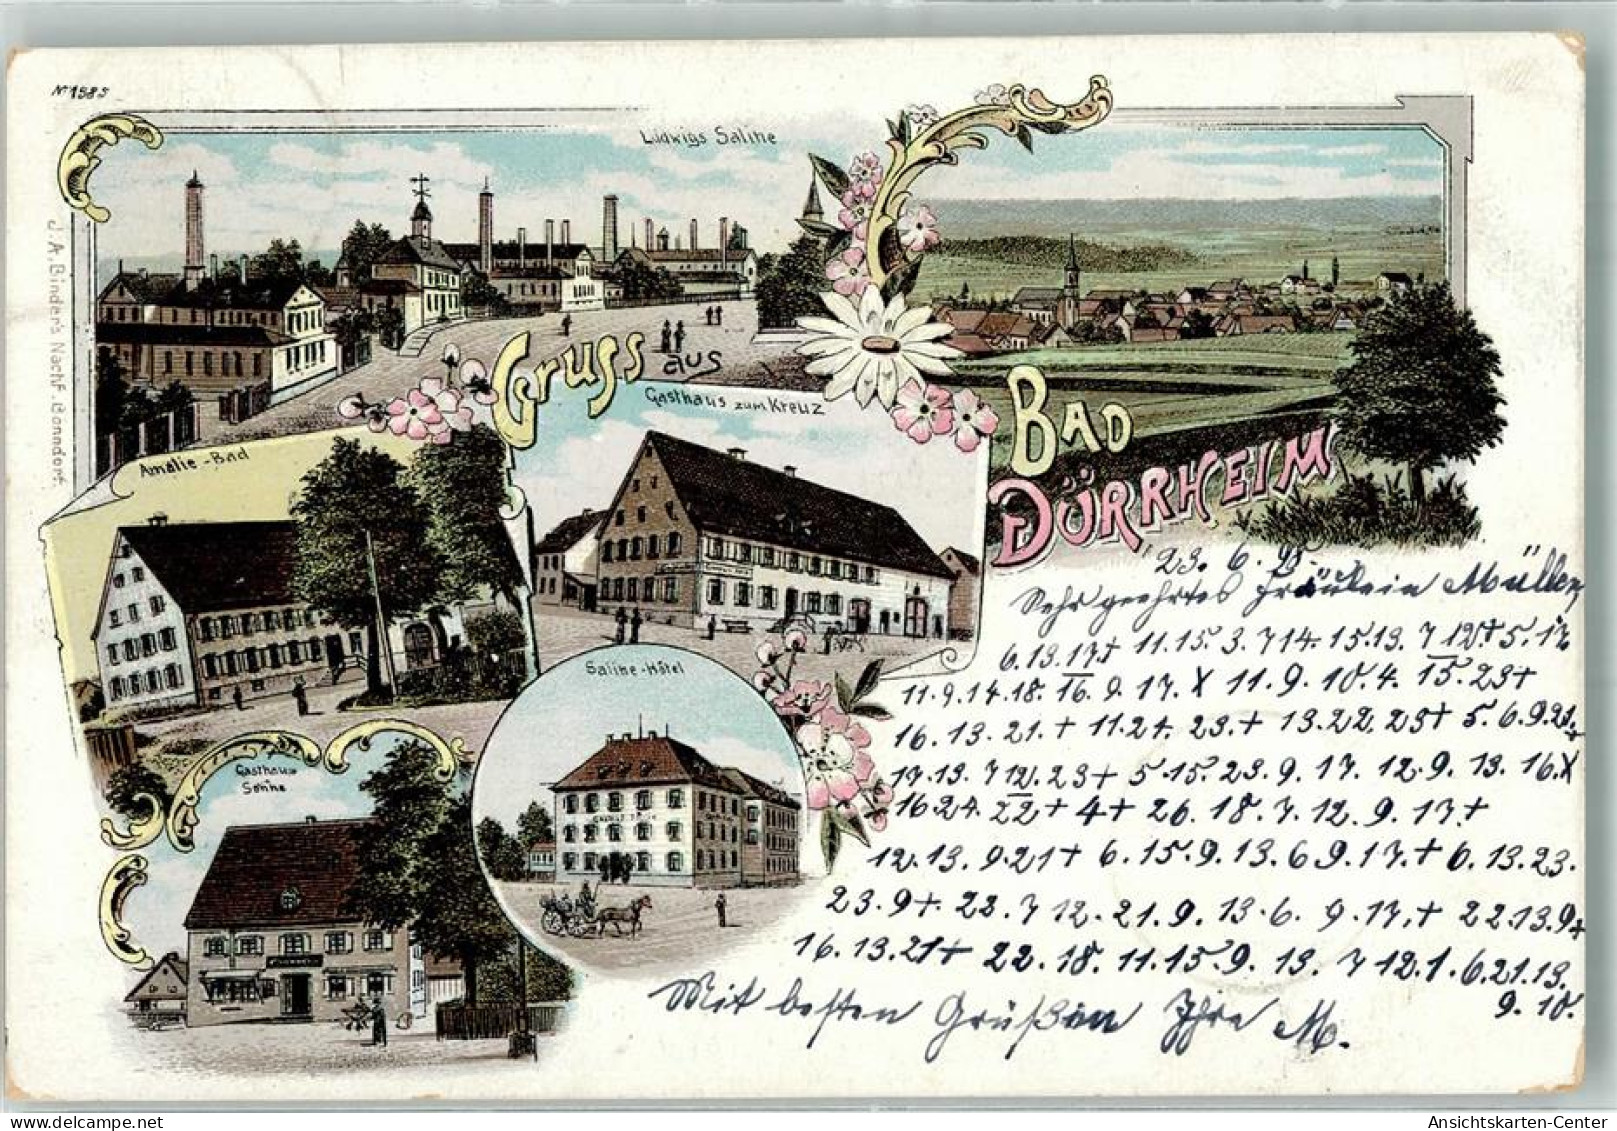 Nº 1985
Ludwigs Saline
Gruss aus
Bad
Dürrheim
Amalie-Bad
Gasthaus zum Kreuz
Saline-Hôtel
Gasthaus
Sonne
J. A. Binder's Nachf. Bonndorf.
23. 6.
Sehr geehrtes Fräulein Müller,
6.13.17+ 11.15.3.7 14.15.13.7 12+5.17
11.9.14.18.16.9.17.X 11.9.10.4.15.23+
16.13.21.+ 11.24.23.+ 13.22.25+ 5.6.9.21+
17.13.7 12.23+ 5.15.23.9.17.12.9.13.16.X
16.24.22+4+26.18.7.12.9.17.+
12.13.9.21+6.15.9.13.6 9.17.+ 6.13.23.
23.9+. 22.7 12.21.9.13.6. 9.17.+ 22.13.9+
16.13.21+ 22.18.11.15.9.13.7 12.1.6.21.13.
9.10.
Mit besten Grüßen Ihre M.
Ansichtskarten-Center